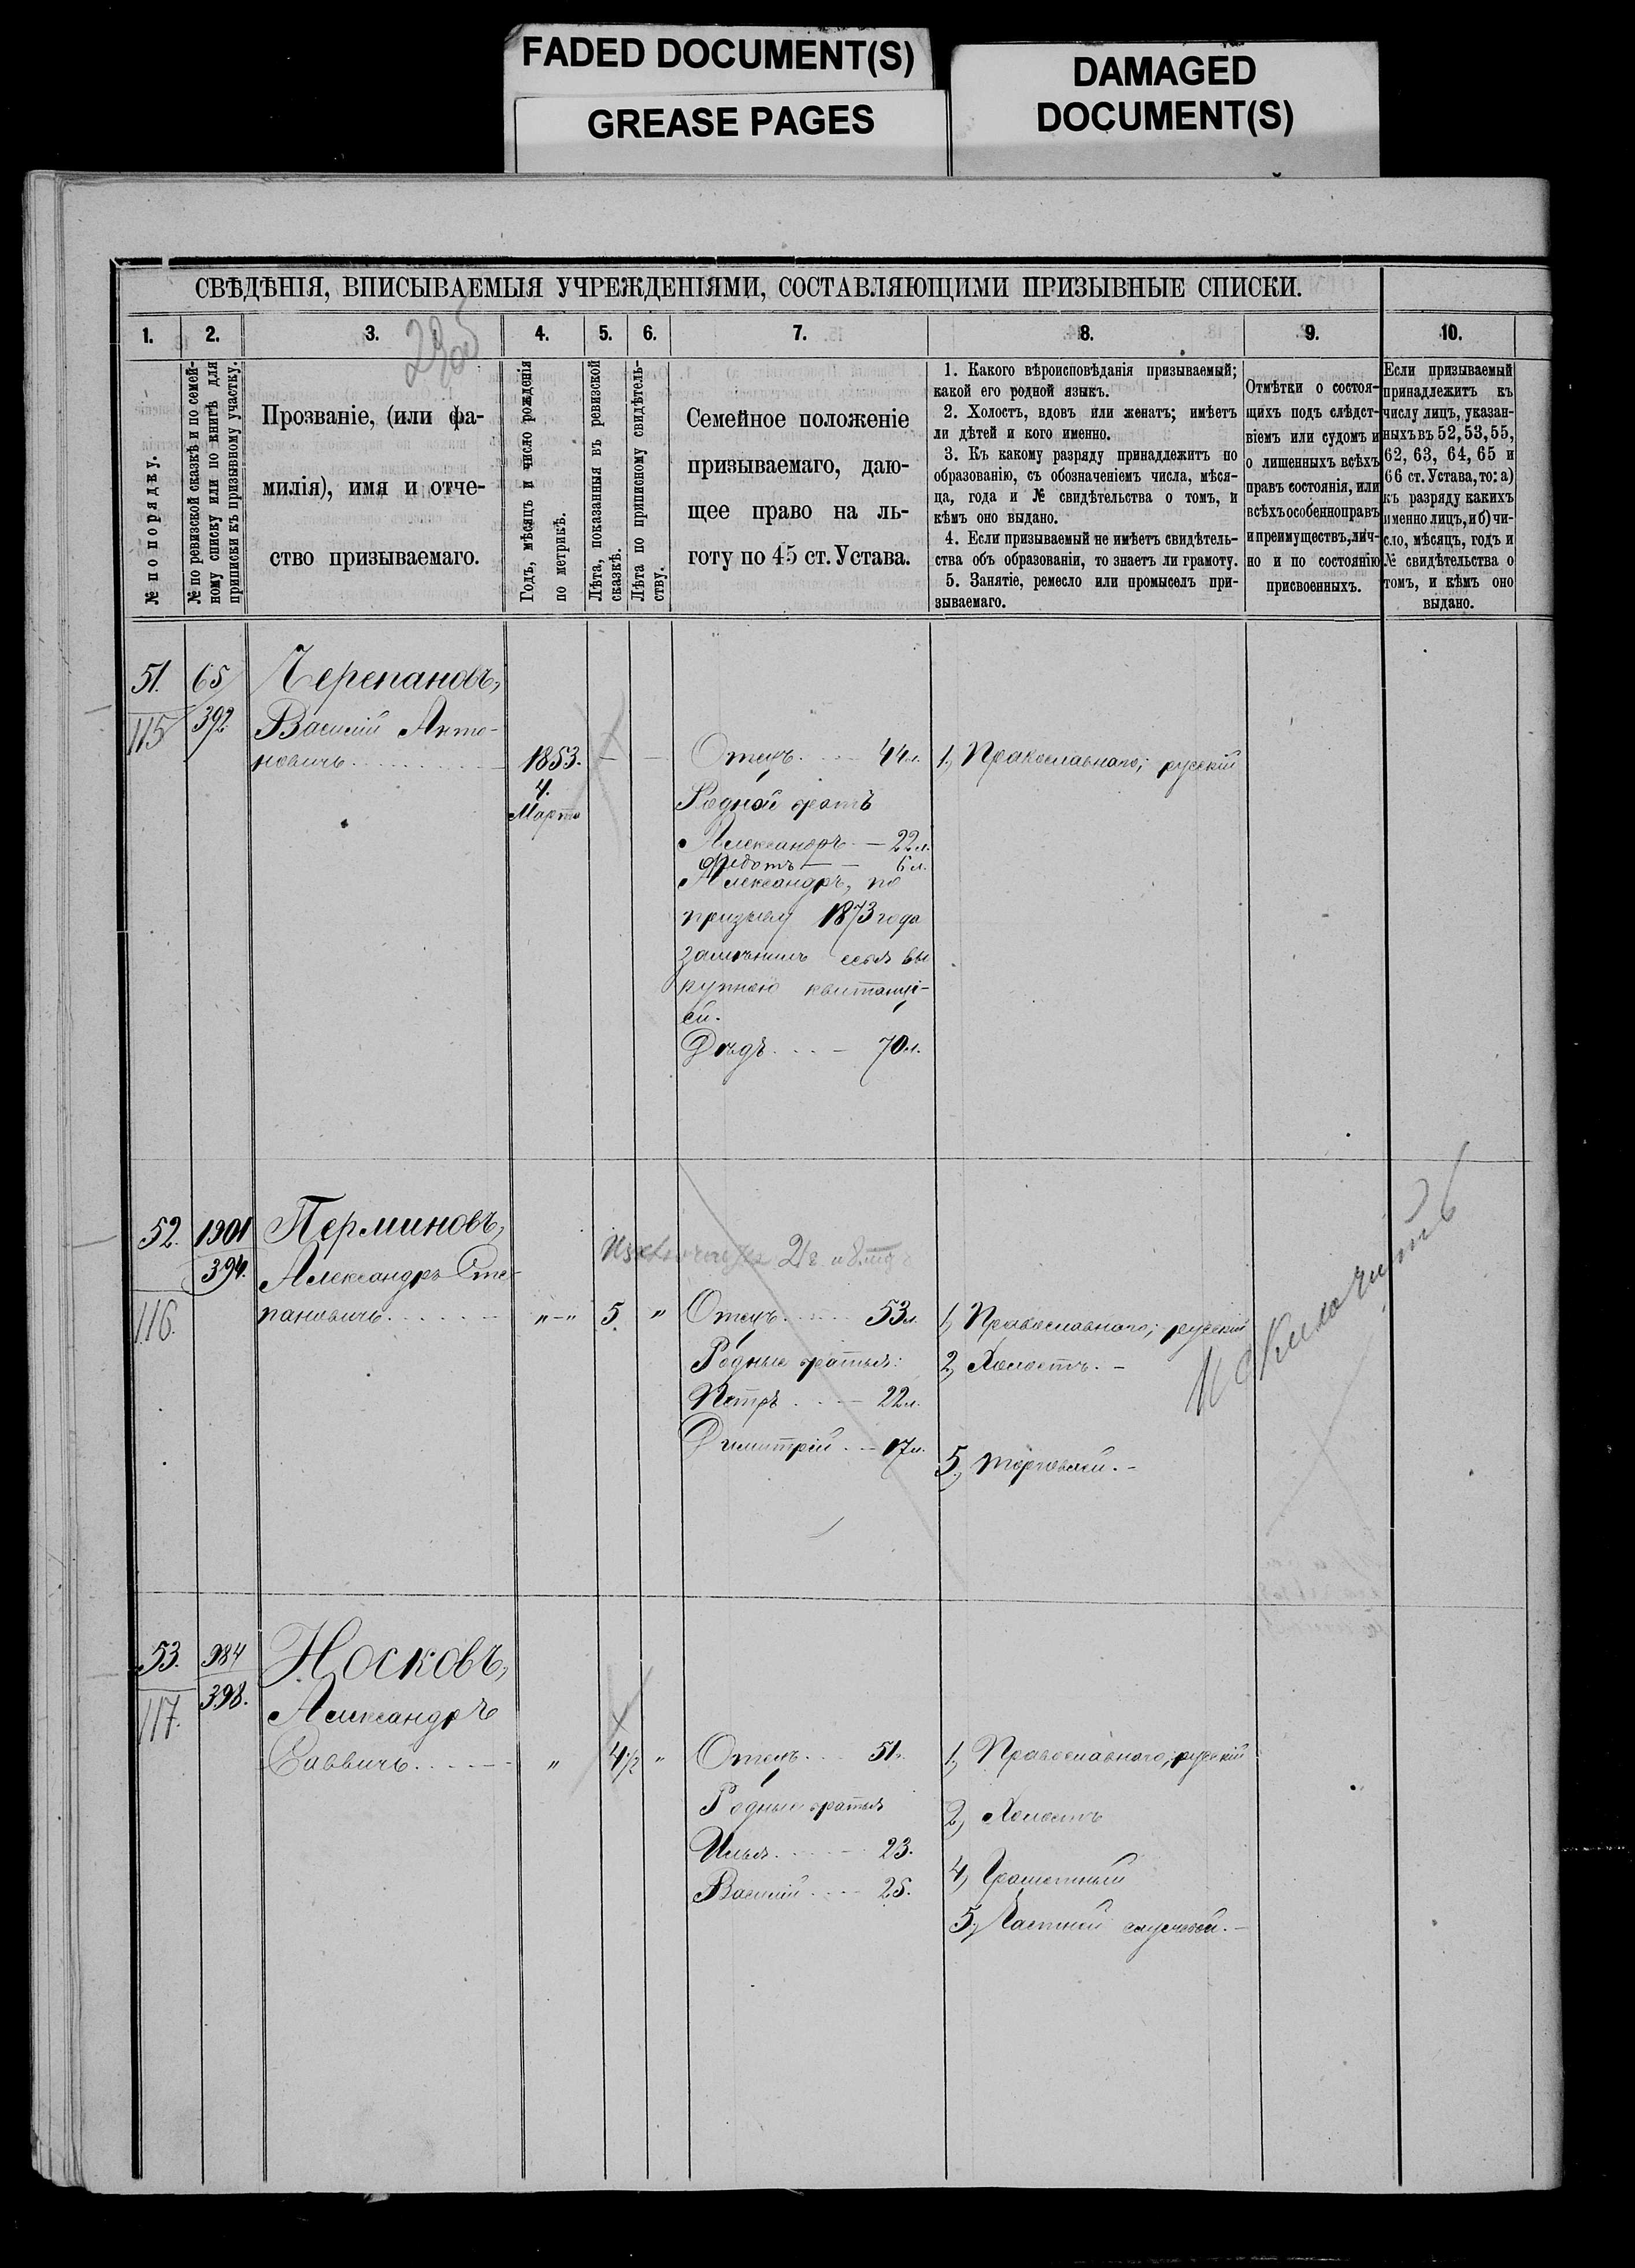 FADED DOCUMENT(S)
GREASE PAGES
DAMAGED
DOCUMENT(S)
СВѢДѢНІЯ, ВПИСЫВАЕМЫЯ УЧРЕЖДЕНІЯМИ, СОСТАВЛЯЮЩИМИ ПРИЗЫВНЫЕ СПИСКИ.
1. 2. 3. 4. 5. 6. 7. 8. 9. 10.
№ по порядку.
№ по ревизской сказкѣ и по семей-
ному списку или по книгѣ для
приписки къ призывному участку.
Прозваніе, (или фа-
милія), имя и отче-
ство призываемаго.
Годъ, мѣсяцъ и число рожденія
по метрикѣ.
Лѣта, показанныя въ ревизской
сказкѣ.
Лѣта по приписному свидѣтель-
ству.
Семейное положеніе
призываемаго, даю-
щее право на ль-
готу по 45 ст. Устава.
1. Какого вѣроисповѣданія призываемый;
какой его родной языкъ.
2. Холостъ, вдовъ или женатъ; имѣетъ
ли дѣтей и кого именно.
3. Къ какому разряду принадлежитъ по
образованію, съ обозначеніемъ числа, мѣся-
ца, года и № свидѣтельства о томъ, и
кѣмъ оно выдано.
4. Если призываемый не имѣетъ свидѣтель-
ства объ образованіи, то знаетъ ли грамоту.
5. Занятіе, ремесло или промыселъ при-
зываемаго.
Отмѣтки о состоя-
щихъ подъ слѣдст-
віемъ или судомъ и
о лишенныхъ всѣхъ
правъ состоянія, или
всѣхъ особенно правъ
и преимуществъ, лич-
но и по состоянію
присвоенныхъ.
Если призываемый
принадлежитъ къ
числу лицъ, указан-
ныхъ въ 52, 53, 55,
62, 63, 64, 65 и
66 ст. Устава, то: а)
къ разряду какихъ
именно лицъ, и б) чи-
сло, мѣсяцъ, годъ и
№ свидѣтельства о
томъ, и кѣмъ оно
выдано.
51. 65 Черепановъ,
115 392 Василій Анто-
новичъ 1853. — — Отецъ 44 л. 1, Православнаго; русскій
4. Родной братъ
Марта
Александръ — 22 л.
Федотъ — 6 л.
Александръ, по
призыву 1873 года
замѣнилъ себя вы
купною квитанці-
ей.
Дѣдъ 70 л.
52. 1901 Перминовъ,
394. Александръ Сте-
116. пановичъ „—„ 5 „ Отецъ 53 л. 1, Православнаго; русскій
Родные братья: 2, Холостъ. —
Петръ 22 л.
Димитрій — 17 л.
5, торговлей. —
Исключить
53. 984 Носковъ,
117. 398. Александръ
Саввичъ „ 4 1/2 „ Отецъ 51 л. 1, Православнаго; русскій
Родные братья
2, Холостъ
Илья 23.
4, Грамотный
Василій 25.
5,